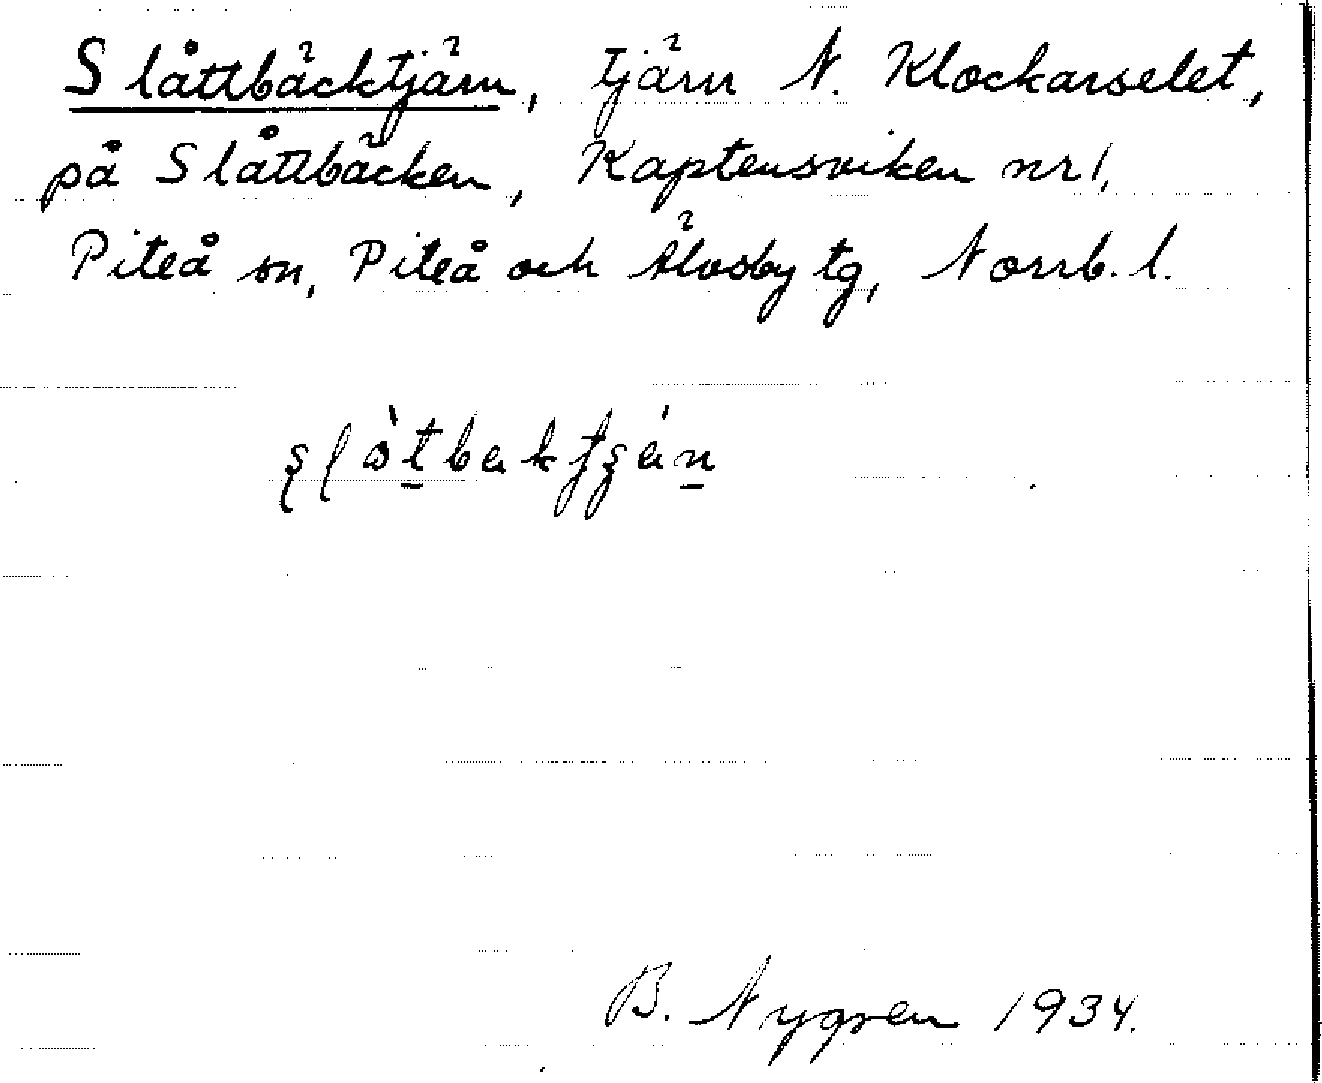 Slåttbäcktjärn, tjärn N. Klockarselet,
på Slåttbäcken, Kaptensviken nr 1,
Piteå sn, Piteå och Älvsby tg, Norrb. l.
B. Nygren 1934.